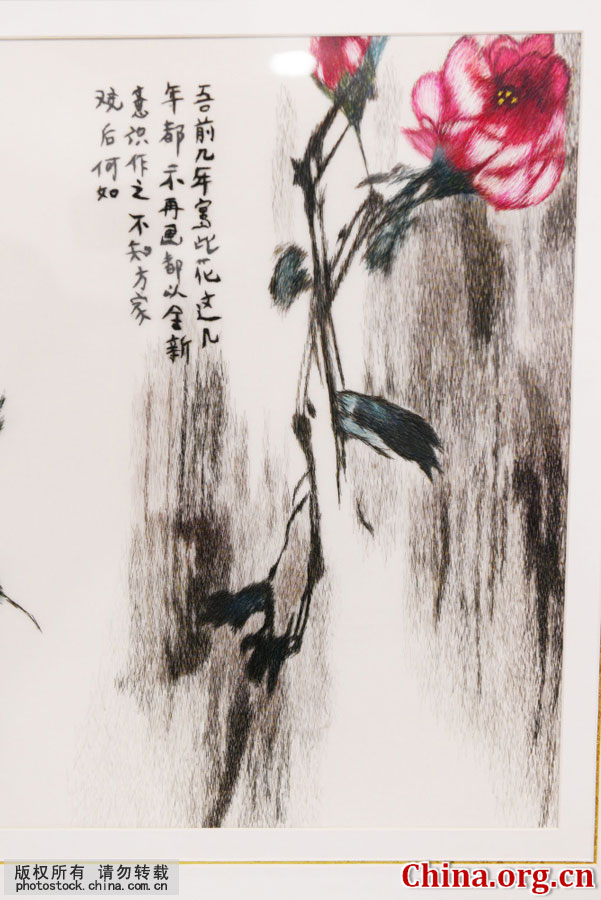 吾前几年写此花这几
年都示再画都以全新
意识作之不知方家
观后何如
版权所有 请勿转载
photostock.china.com.cn
China.org.cn